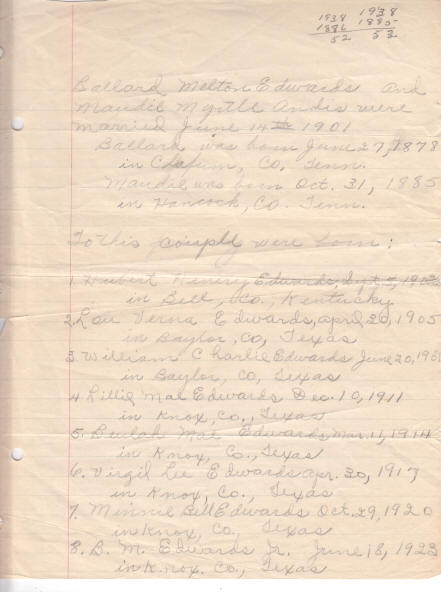 1938 1938
1886 1885
52 53
Ballard Melton Edwards and
Maudie Myrtle Andis were
married June 14th 1901
Ballard was born June 27, 1878
in Co. Tenn.
Maudie was born Oct. 31, 1885
in Hancock, Co. Tenn.
To this couple were born:
1. Hubert Edwards, Sept.
in Bell, Co., Kentucky
2. Lou Verna Edwards, april 20, 1905
in Baylor, Co, Texas
3. William Charlie Edwards June 20,
in Baylor, Co, Texas
4. Lillie Mae Edwards Dec. 10, 1911
in Knox, Co., Texas
5. Beulah Mae Edwards Mar. 11, 1914
in Knox, Co., Texas
6. Virgil Lee Edwards apr. 30, 1917
in Knox, Co., Texas
7. Minnie Bell Edwards Oct. 29, 1920
in Knox, Co, Texas
8. B. M. Edwards Jr. June 18, 1923
in Knox. Co., Texas